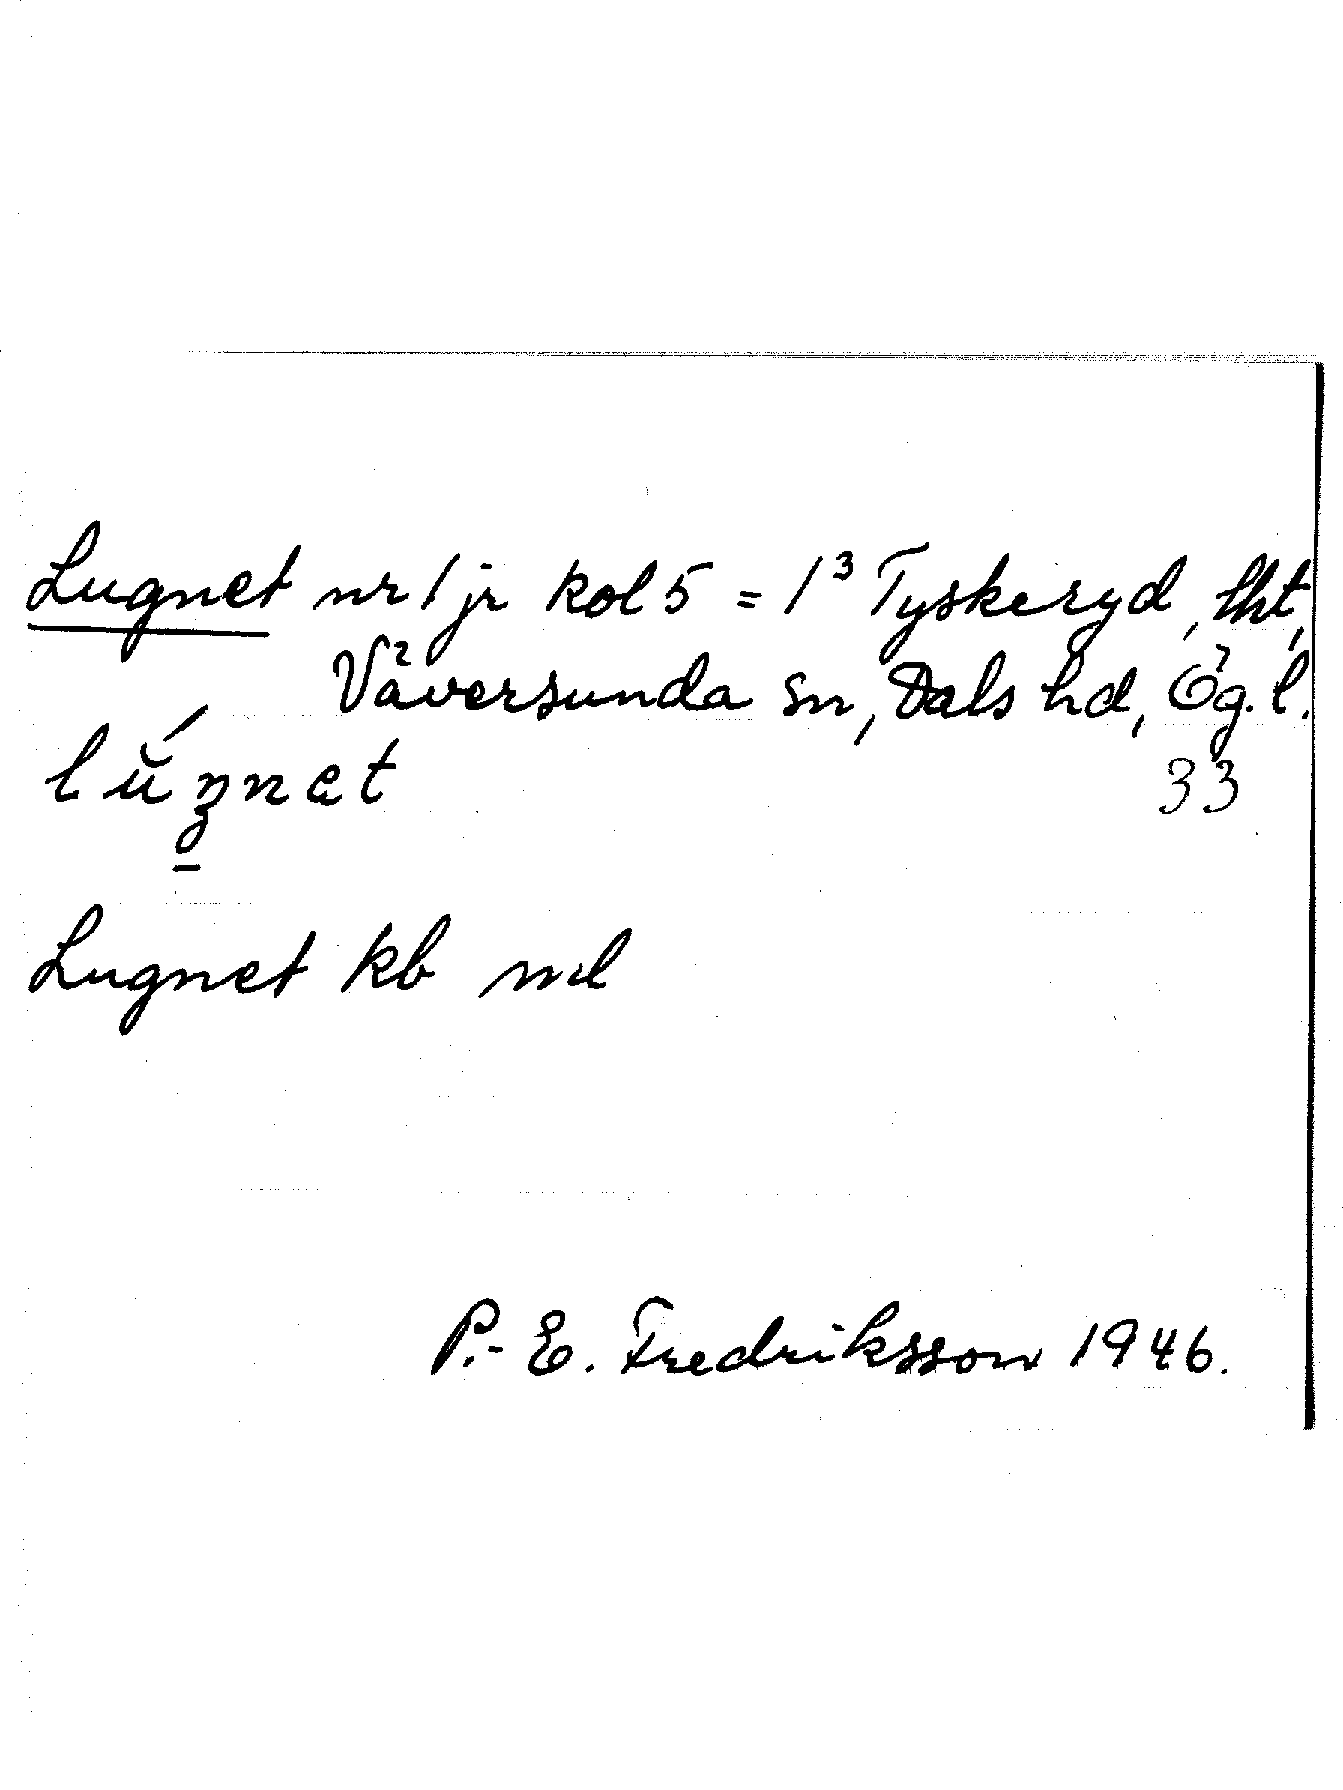 Lugnet nr 1 jr kol 5 = 1³ Tyskeryd, lht,
Väversunda sn, Dals hd, Ög. l.
33
Lugnet kb ml
P.-E. Fredriksson 1946.